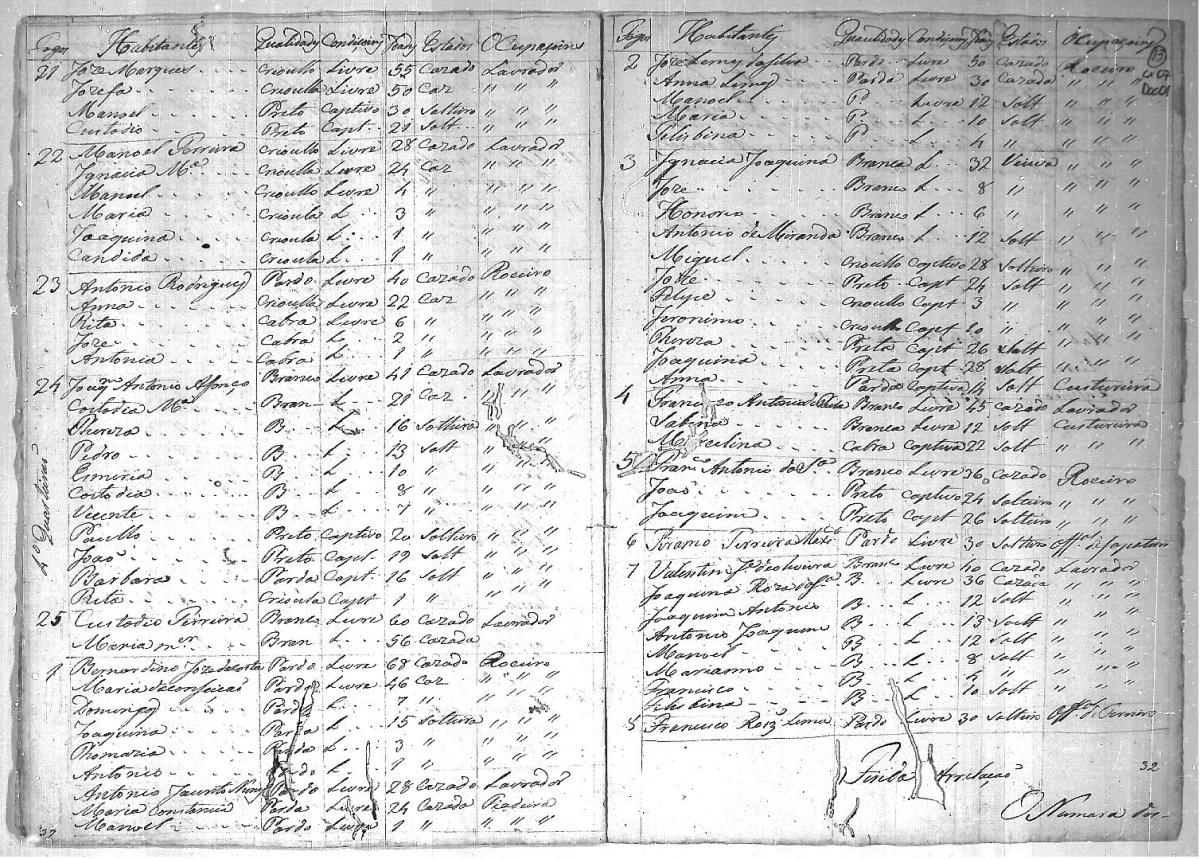 Fogos Habitantes Qualidades Condiçoins Idades Estados OCupaçoins
21 Joze Marques Crioullo Livre 55 Cazado Lavrador
Jozefa Crioulla Livre 50 Caz " " "
Manoel Preto Captivo 30 Solteiro " " "
Custodio Preto Capt. 21 Solt " " "
22 Manoel Ferreira Crioullo Livre 28 Cazado Lavrador
Ignacia Mª Crioulla Livre 24 Caz
Manoel Crioullo Livre 4 " " " "
Maria Crioula L. 3 " " " "
Joaquina Crioula L. 1 " " " "
Candida Crioula L. 1 " " " "
23 Antonio Rodrigues Pardo Livre 40 Cazado Roceiro
Anna Crioulla Livre 22 Caz " " "
Rita Cabra Livre 6 " " " "
Joze Cabra L. 2 " " " "
Antonia Cabra L. 1 " " " "
24 Joaqm Antonio Affonço Branco Livre 41 Cazado Lavrador
Costodia Mª Bran L. 21 Caz " " "
Thereza B. L. 16 Solteira " " "
Pedro B. L. 13 Solt " " "
Emiria B. L. 10 "
Costodia B. L. 8 " " " "
Vicente B. L. 7 " " " "
Paullo Preto Captivo 20 Solteiro " " "
João Preto Capt. 19 Solt " " "
Barbara Parda Capt. 16 Solt " " "
Rita Crioula Capt 1 " " " "
4º Quarteirão
25 Custodio Ferreira Branco Livre 60 Cazado Lavrador
Maria Bran L. 56 Cazada
1 Bernardino Joze da Costa Pardo Livre 68 Cazado Roceiro
Maria da Conseicaõ Parda Livre 46 Caz " " "
Domingos Pardo L. 7 " " " "
Joaquina Parda L. 15 Solteira " " "
Thomazia Parda L. 3 " " " "
Antonio Pardo L. 1 " " " "
Antonio Jacinto Nunes Pardo Livre 28 Cazado Lavrador
Maria Constancia Parda Livre 24 Cazada Fiadeira
Manoel Pardo Livre 1 " " " "
37
Fogos Habitantes Quualidades Condiçoins Idades Estados OCupaçoins
13
CX 07
Doc 01
2 Joze Lemes da Silva Pardo Livre 50 Cazado Roceiro
Anna Lemes Parda Livre 30 Cazada " " "
Manoel P. Livre 12 Solt " " "
Maria P. L. 10 Solt " " "
Felisbina P. L. 4 " " " "
3 Ignacia Joaquina Branca L. 32 Viuva " " "
Joze Branco L. 8 " " " "
Honorio Branco L. 6 " " " "
Antonio de Miranda Branco L. 12 Solt " " "
Miguel Crioullo Captivo 28 Solteiro " " "
Joze Preto Capt 24 Solt " " "
Felipe Crioullo Capt 3 " " " "
Jeronimo Crioullo Capt 20 " " " "
Thereza Preta Capt 26 Solt " " "
Joaquina Preta Capt 28 Solt " " "
Anna Parda Captiva 14 Solt Custureira
4 Francisco Antonio Branco Livre 45 Cazado Lavrador
Sabina Branca Livre 12 Solt Custureira
Marcelina Cabra Captiva 22 Solt " "
5 Franco Antonio da Sª Branco Livre 36 Cazado Roceiro
João Preto Captivo 24 Solteiro " " "
Joaquim Preto Capt 26 Solteiro " " "
6 Firamo Ferreira Pardo Livre 30 Solteiro Offal de Sapateiro
7 Valentim Je de Oliveira Branco Livre 40 Cazado Lavrador
Joaquina Roza B. Livre 36 Cazada " " "
Joaquim Antonio B. L. 12 Solt " " "
Antonio Joaquim B. L. 13 Solt " " "
Manoel B. L. 12 Solt " " "
Marianno B. L. 8 Solt " " "
Francisco B. L. 4 " " " "
Felisbina B. L. 10 Solt " " "
8 Francisco Roiz Lima Pardo Livre 30 Solteiro Offal de Ferreiro
Finda Arrelaçaõ
32
O Numara dos-